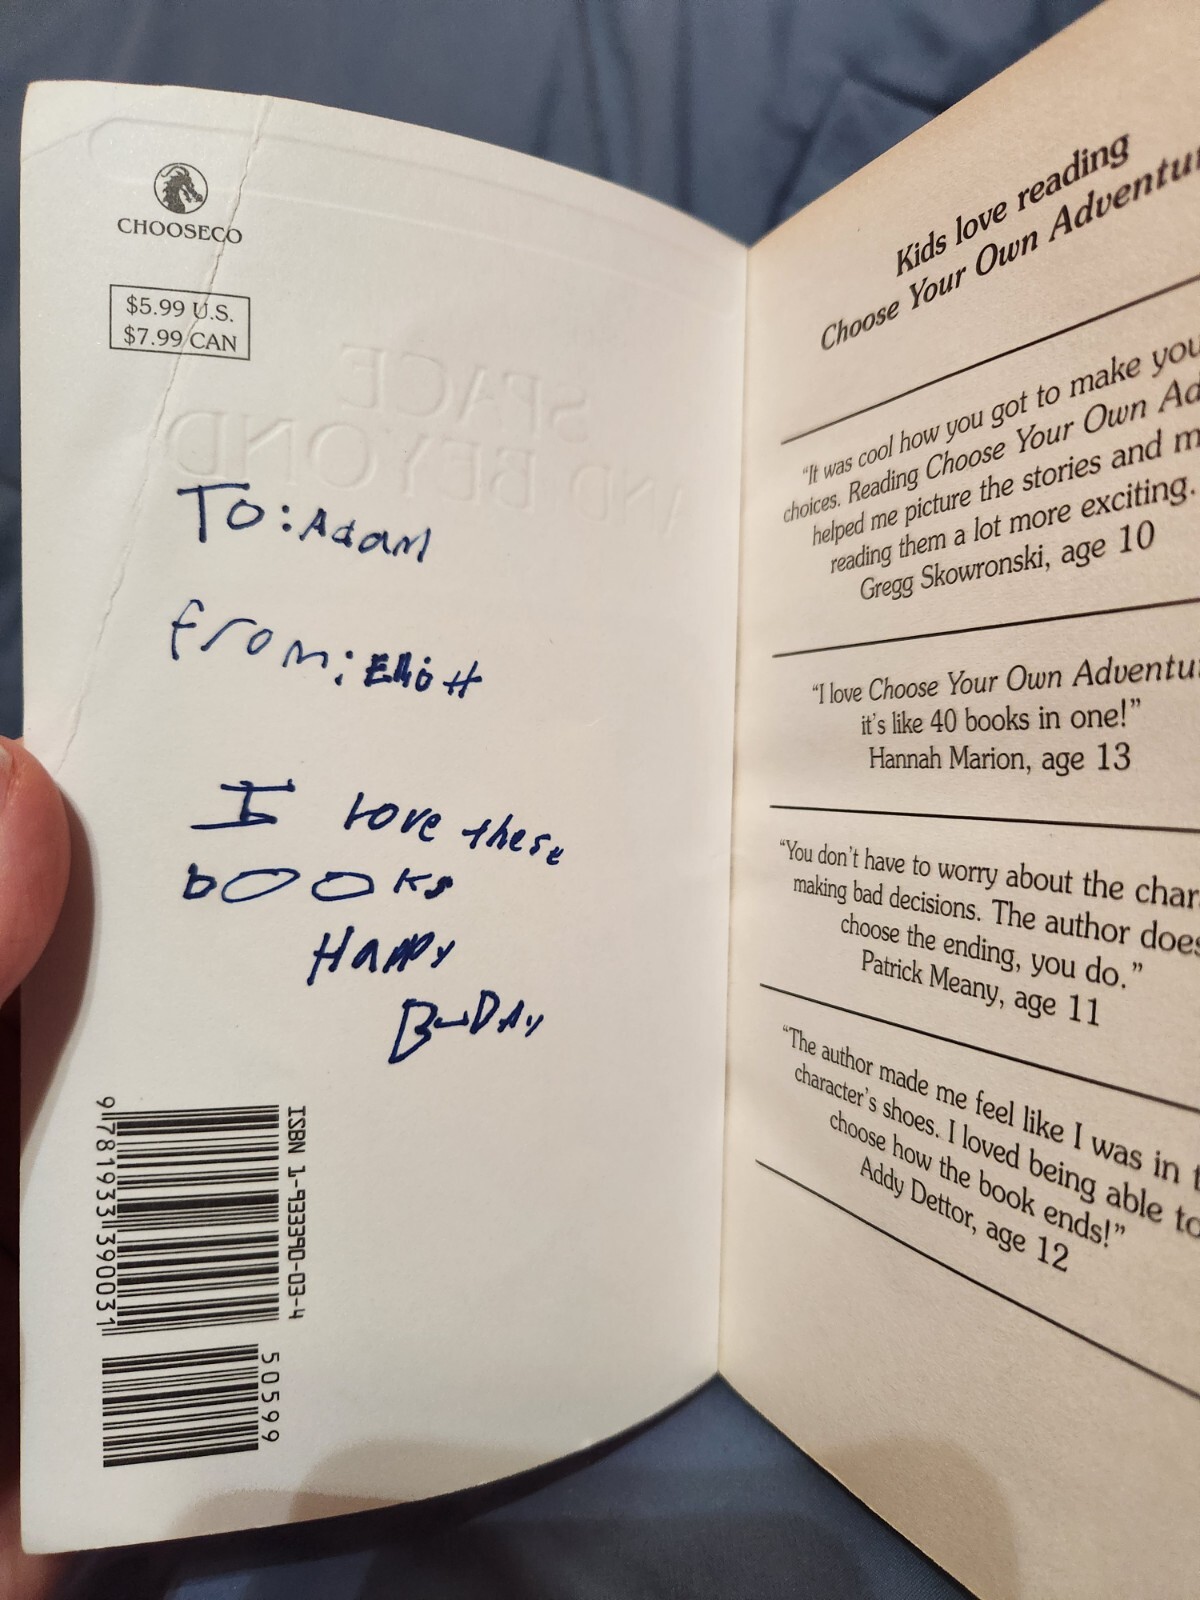 CHOOSECO
$5.99 U.S.
$7.99 CAN
SPACE
ND BEYOND
To: Adam
From: Elliott
I love these
books
Happy
B-DAy
ISBN 1-933390-03-4
9 781933 390031
50599
Kids love reading
Choose Your Own Adventu
"It was cool how you got to make you
choices. Reading Choose Your Own Ad
helped me picture the stories and m
reading them a lot more exciting.
Gregg Skowronski, age 10
"I love Choose Your Own Adventu
it's like 40 books in one!"
Hannah Marion, age 13
"You don't have to worry about the char
making bad decisions. The author does
choose the ending, you do."
Patrick Meany, age 11
"The author made me feel like I was in t
character's shoes. I loved being able to
choose how the book ends!"
Addy Dettor, age 12